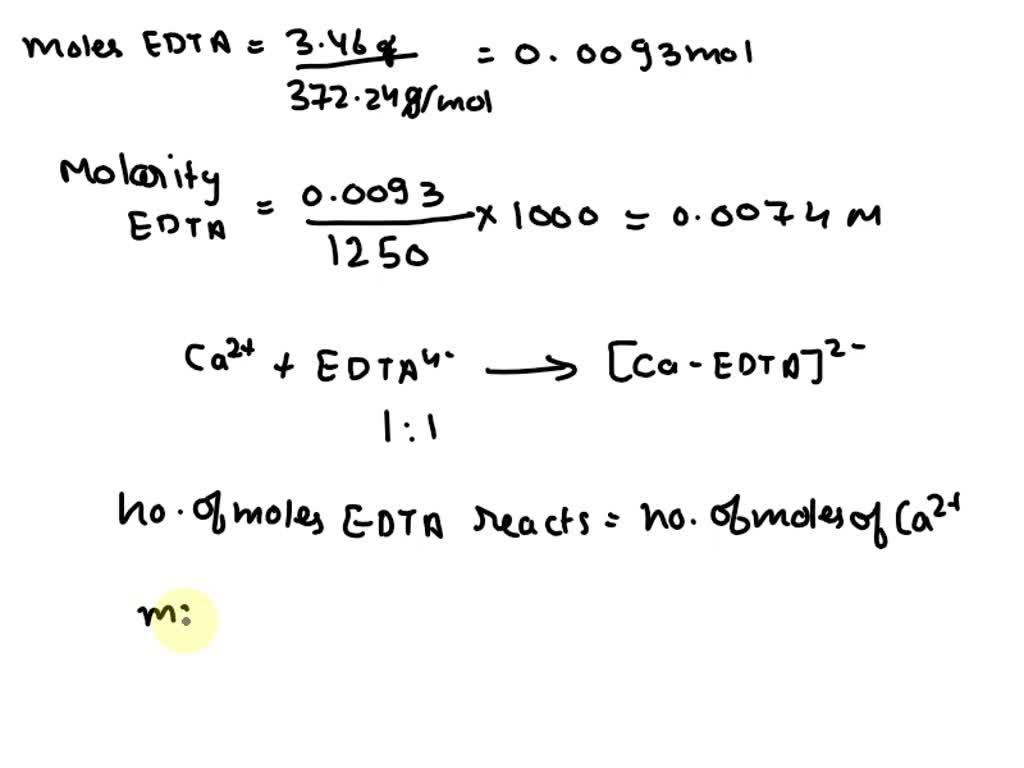 moles EDTA = 3.46g / 372.24g/mol = 0.0093mol
Molarity EDTA = 0.0093 / 1250 × 1000 = 0.0074 M
Ca²⁺ + EDTA⁴⁻ ⟶ [Ca-EDTA]²⁻
1:1
no. of moles EDTA reacts = no. of moles of Ca²⁺
m: